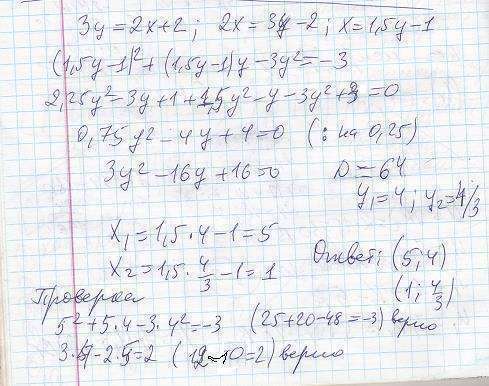 3y = 2x+2; 2x = 3y-2; x = 1,5y-1
(1,5y-1)²+(1,5y-1)y-3y²=-3
2,25y²-3y+1+1,5y²-y-3y²+3=0
0,75y²-4y+4=0 (: на 0,25)
3y²-16y+16=0 D=64
y₁=4; y₂=4/3
x₁=1,5·4-1=5
x₂=1,5·4/3-1=1
Ответ: (5;4)
(1; 4/3)
Проверка
5²+5·4-3·4²=-3 (25+20-48=-3) верно
3·4-2·5=2 (12-10=2) верно